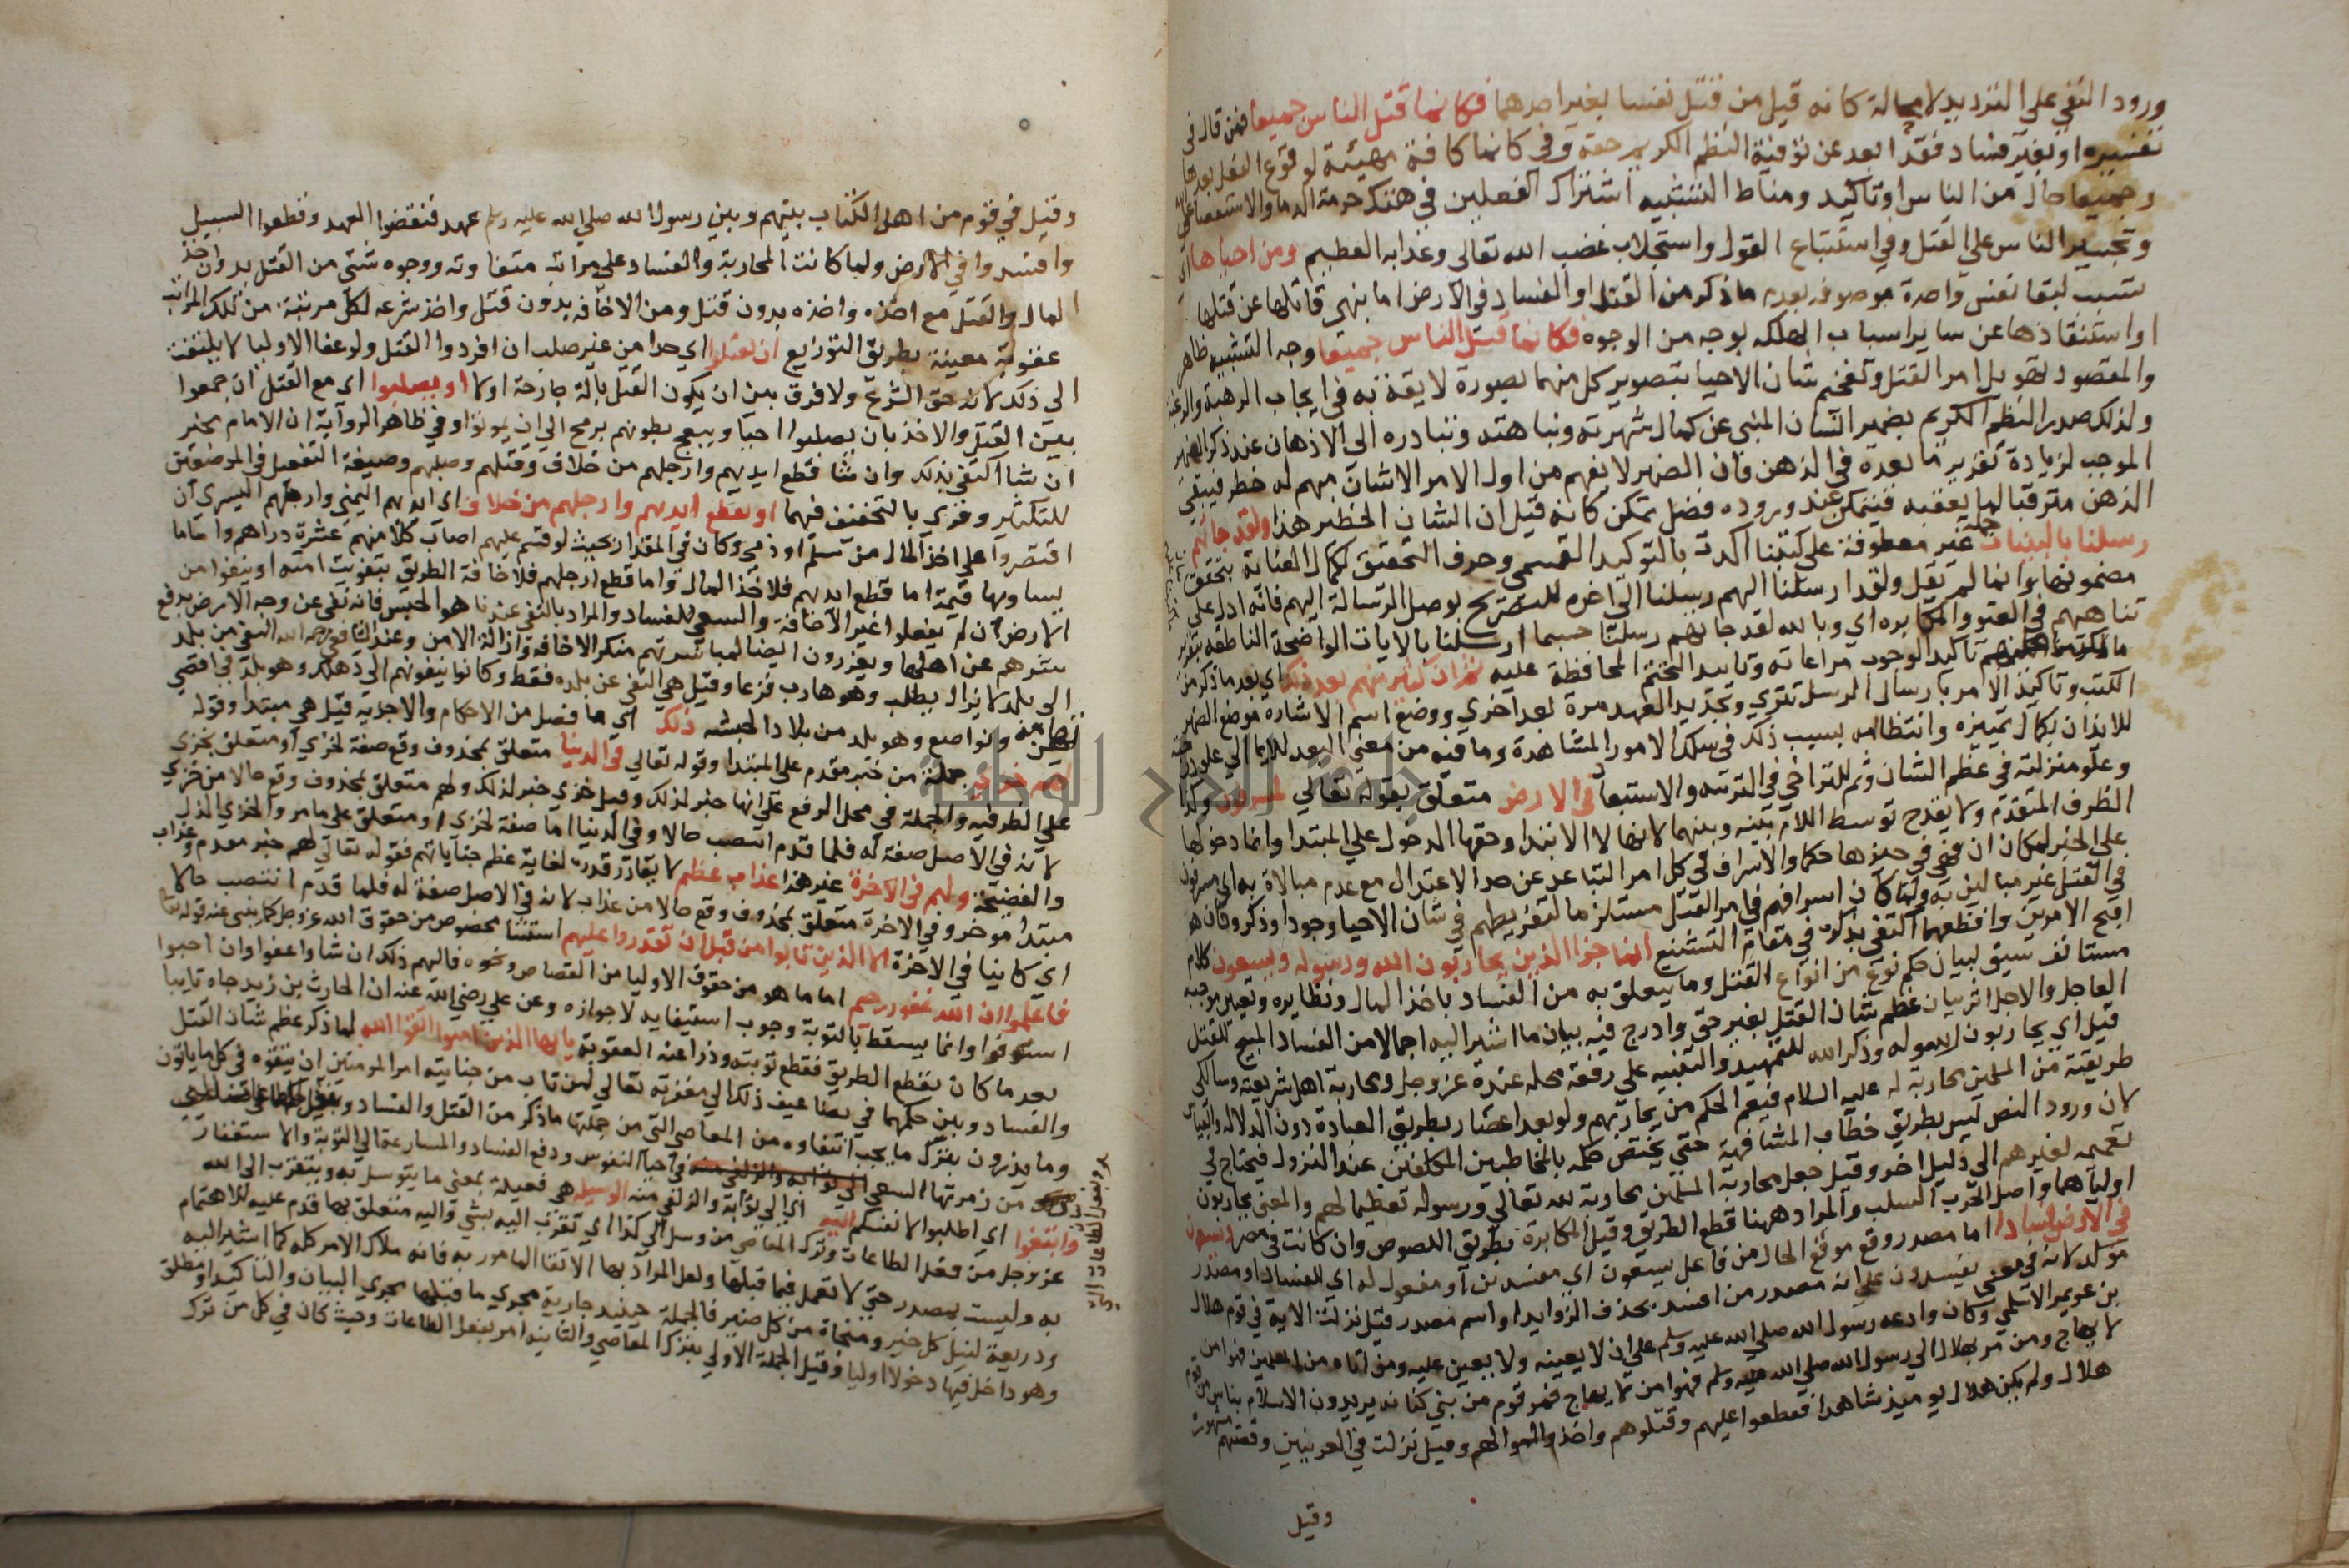 ورود النفي على الترديد لا محالة كانه قيل من قتل نفسا بغير احدهما فكانما قتل الناس جميعا فمن قال في
تفسيره او بغير فساد فقد ابعد عن توفية النظم الكريم حقه وفي كانما كافة مهيئة لوقوع الفعل بعدها
وجميعا حال من الناس او تاكيد ومناط التشبيه اشتراك الفعلين في هتك حرمة الدما والاستعصا على الله
وتجسير الناس على القتل وفي استتباع القود واستجلاب غضب الله تعالى وعذابه العظيم ومن احياها اي
تسبب لبقا نفس واحدة موصوفة بعدم ما ذكر من القتل او الفساد في الارض اما بنهي قاتلها عن قتلها
او استنقاذها عن ساير اسباب الهلكه بوجه من الوجوه فكانما قتل الناس جميعا وجه التشبيه ظاهر
والمقصود تهويل امر القتل وتفخيم شان الاحيا بتصوير كل منهما بصورة لايقة به في ايجاب الرهبة والرغبة
ولذلك صدر النظم الكريم بضمير الشان المنبي عن كمال شهرته ونباهته وتبادره الى الاذهان عند ذكر الضمير
الموجب لزيادة تقرير ما بعده في الذهن فان الضمير لا يفهم من اول الامر الا شان مبهم له خطر فيبقى
الذهن مترقبا لما يعقبه فيتمكن عند وروده فضل تمكن كانه قيل ان الشان الخطير هذا ولقد جاتهم
رسلنا بالبينات جملة غير معطوفة على كتبنا اكدت بالتوكيد القسمي وحرف التحقيق لكمال العناية بتحقق
مضمونها وانما لم يقل ولقد ارسلنا اليهم رسلنا الى اخره للتصريح بوصول الرسالة اليهم فانه ادل على
تناهيهم في العتو والمكابره اي وبالله لقد جاتهم رسلنا حسبما ارسلنا بالايات الواضحة الناطقه بتقرير
ما كتبنا عليهم تاكيدا لوجوب مراعاته وتاييدا لتحتم المحافظة عليه ثم ان كثيرا منهم بعد ذلك اي بعد ما ذكر من
الكتب وتاكيد الامر بارسال الرسل تترى وتجديد العهد مرة بعد اخري ووضع اسم الاشارة موضع الضمير
للايذان بكمال تميزه وانتظامه بسبب ذلك في سلك الامور المشاهدة وما فيه من معنى البعد للايما الي علو درجته
وعلو منزلته في عظم الشان وثم للتراخي في الرتبه والاستبعاد في الارض متعلق بقوله تعالي لمسرفون وكذا
الظرف المتقدم ولا يقدح توسط اللام بينه وبينهما لانها لام الابتدا وحقها الدخول علي المبتدا وانما دخولها
على الخبر لمكان ان فهي في حيزها حكما والاسراف في كل امر التباعد عن حد الاعتدال مع عدم مبالاة به اي مسرفون
في القتل غير مبالين به ولما كان اسرافهم في امر القتل مستلزما لتفريطهم في شان الاحيا وجودا وذكرا وكان هو
اقبح الامرين وافظعهما اكتفي بذكره في مقام التشنيع انما جزا الذين يحاربون الله ورسوله ويسعون كلام
مستانف سيق لبيان حكم نوع من انواع القتل وما يتعلق به من الفساد باخذ المال ونظايره وتعيين موجبه
العاجل والاجل اثر بيان عظم شان القتل بغير حق وادرج فيه بيان ما اشير اليه اجمالا من الفساد المبيح للقتل
قيل اي يحاربون رسوله وذكر الله للتمهيد والتنبيه علي رفعة محله عنده عز وجل ومحاربة اهل شريعته وسالكي
طريقته من المسلمين محاربة له عليه السلام فيعم الحكم من يحاربهم ولو بعد اعصار بطريق العبادة دون الدلالة والقياس
لان ورود النص ليس بطريق خطاب المشافهة حتي يختص حكمه بالمخاطبين المكلفين عند النزول فيحتاج في
تعميمه لغيرهم الى دليل اخر وقيل جعل محاربة المسلمين محاربة لله تعالي ورسوله تعظيما لهم والمعني يحاربون
اولياهما واصل الحرب السلب والمراد ههنا قطع الطريق وقيل المكابرة بطريق اللصوص وان كانت في مصر ويسعون
في الارض فسادا اما مصدر وقع موقع الحال من فاعل يسعون اي مفسدين او مفعول له اي للفساد او مصدر
موكد لانه في معنى يفسدون على انه مصدر من افسد بحذف الزوايد او اسم مصدر قيل نزلت الاية في قوم هلال
بن عويمر الاسلمي وكان وادعه رسول الله صلى الله عليه وسلم على ان لا يعينه ولا يعين عليه ومن اتاه من المسلمين فهو امن
لا يهاج ومن مر بهلال الى رسول الله صلى الله عليه وسلم فهو امن لا يهاج فمر قوم من بني كنانه يريدون الاسلام بناس من قوم
هلال ولم يكن هلال يوميذ شاهدا فقطعوا عليهم وقتلوهم واخذوا اموالهم وقيل نزلت في العرنيين وقصتهم مشهورة
وقيل
وقيل في قوم من اهل الكتاب بينهم وبين رسول الله صلي الله عليه وسلم عهد فنقضوا العهد وقطعوا السبيل
وافسدوا في الارض ولما كانت المحاربة والفساد على مراتب متفاوته ووجوه شتى من القتل بدون اخذ
المال والقتل مع اخذه واخذه بدون قتل ومن الاخافه بدون قتل واخذ شرعه لكل مرتبة من تلك المراتب
عقوبة معينة بطريق التوزيع ان يقتلوا اي حدا من غير صلب ان افردوا القتل ولو عفا الاوليا لا يلتفت
الى ذلك لانه حق الشرع ولا فرق بين ان يكون القتل بالة جارحة اولا او يصلبوا اي مع القتل ان جمعوا
بين القتل والاخذ بان يصلبوا احيا ويبعج بطونهم برمح الي ان يموتوا وفي ظاهر الرواية ان الامام مخير
ان شا اكتفي بذلك وان شا قطع ايديهم وارجلهم من خلاف وقتلهم وصلبهم وصيغة التفعيل في الموضعين
للتكثير وقري بالتخفيف فيهما او تقطع ايديهم وارجلهم من خلاف اي ايديهم اليمنى وارجلهم اليسرى ان
اقتصروا على اخذ المال من مسلم او ذمي وكان في المقدار بحيث لو قسم عليهم اصاب كلا منهم عشرة دراهم او ما
يساويها قيمة اما قطع ايديهم فلاخذ المال واما قطع ارجلهم فلاخافة الطريق بتفويت امنه او ينفوا من
الارض ان لم يفعلوا غير الاخافة والسعي للفساد والمراد بالنفي عندنا هو الحبس فانه نفي عن وجه الارض بدفع
شرهم عن اهلها ويعزرون ايضا لمباشرتهم منكر الاخافة وازالة الامن وعند الشافعي رحمه الله النفي من بلد
الى بلد لا يزال يطلب وهو هارب فزعا وقيل هي النفي عن بلده فقط وكانوا ينفونهم الى دهلك وهو بلد في اقصي
تهامه ونواصع وهو بلد من بلاد الحبشه ذلك اي ما فصل من الاحكام والاجزية قيل هي مبتدا وقوله
لهم خزي جملة من خبر مقدم على المبتدا وقوله تعالي في الدنيا متعلق بمحذوف وقع صفة لخزي او متعلق بخزي
علي الظرفيه والجملة في محل الرفع على انها خبر لذلك وقيل خزي خبر لذلك ولهم متعلق بمحذوف وقع حالا من خزي
لانه في الاصل صفة له فلما قدم انتصب حالا وفي الدنيا اما صفة لخزي او متعلق على ما مر والخزي الذل
والفضيحة ولهم في الاخرة غير هذا عذاب عظيم لا يقادر قدره لغاية عظم جناياتهم فقوله تعالي لهم خبر مقدم وعذاب
مبتدا موخر وفي الاخرة متعلق بمحذوف وقع حالا من عذاب لانه في الاصل صفة له فلما قدم انتصب حالا
اي كاينا في الاخرة الا الذين تابوا من قبل ان تقدروا عليهم استثنا مخصوص من حقوق الله عز وجل كما ينبى عنه قوله تعالى
فاعلموا ان الله غفور رحيم اما ما هو من حقوق الاوليا من القصاص ونحوه فالهم ذلك ان شاوا عفوا وان احبوا
استوفوا وانما يسقط بالتوبة وجوب استيفايه لا جوازه وعن علي رضي الله عنه ان الحارث بن زيد جاه تايبا
بعد ما كان يقطع الطريق فقطع توبته وذرا عنه العقوبة يا ايها الذين امنوا اتقوا الله لما ذكر عظم شان القتل
والفساد وبين حكمهما في تضاعيف ذلك الي مغفرته تعالي لمن تاب من جنايته امر المومنين ان يتقوه في كل ما ياتون
وما يذرون بترك ما يجب اتقاوه من المعاصي التي من جملتها ما ذكر من القتل والفساد وبفعل الطاعات التي
من زمرتها السعي في احيا النفوس ودفع الفساد والمسارعة الى التوبة والاستغفار
وابتغوا اي اطلبوا لانفسكم اليه اي الي ثوابه والزلفي منه الوسيله هي فعيلة بمعنى ما يتوسل به ويتقرب الى الله
عز وجل من فعل الطاعات وترك المعاصي من وسل الى كذا اي تقرب اليه بشي واليه متعلق بها قدم عليه للاهتمام
به وليست بمصدر حتي لا تعمل فيما قبلها ولعل المراد بها الاتقا المامور به فانه ملاك الامر كله كما اشير اليه
وذريعة لنيل كل خير ومنجاة من كل ضير فالجملة حينيذ جارية مجري ما قبلها مجري البيان والتاكيد او مطلق
وهو داخل فيها دخولا اوليا وقيل الجملة الاولي بترك المعاصي والثانيه امر بفعل الطاعات وحيث كان في كل من ترك